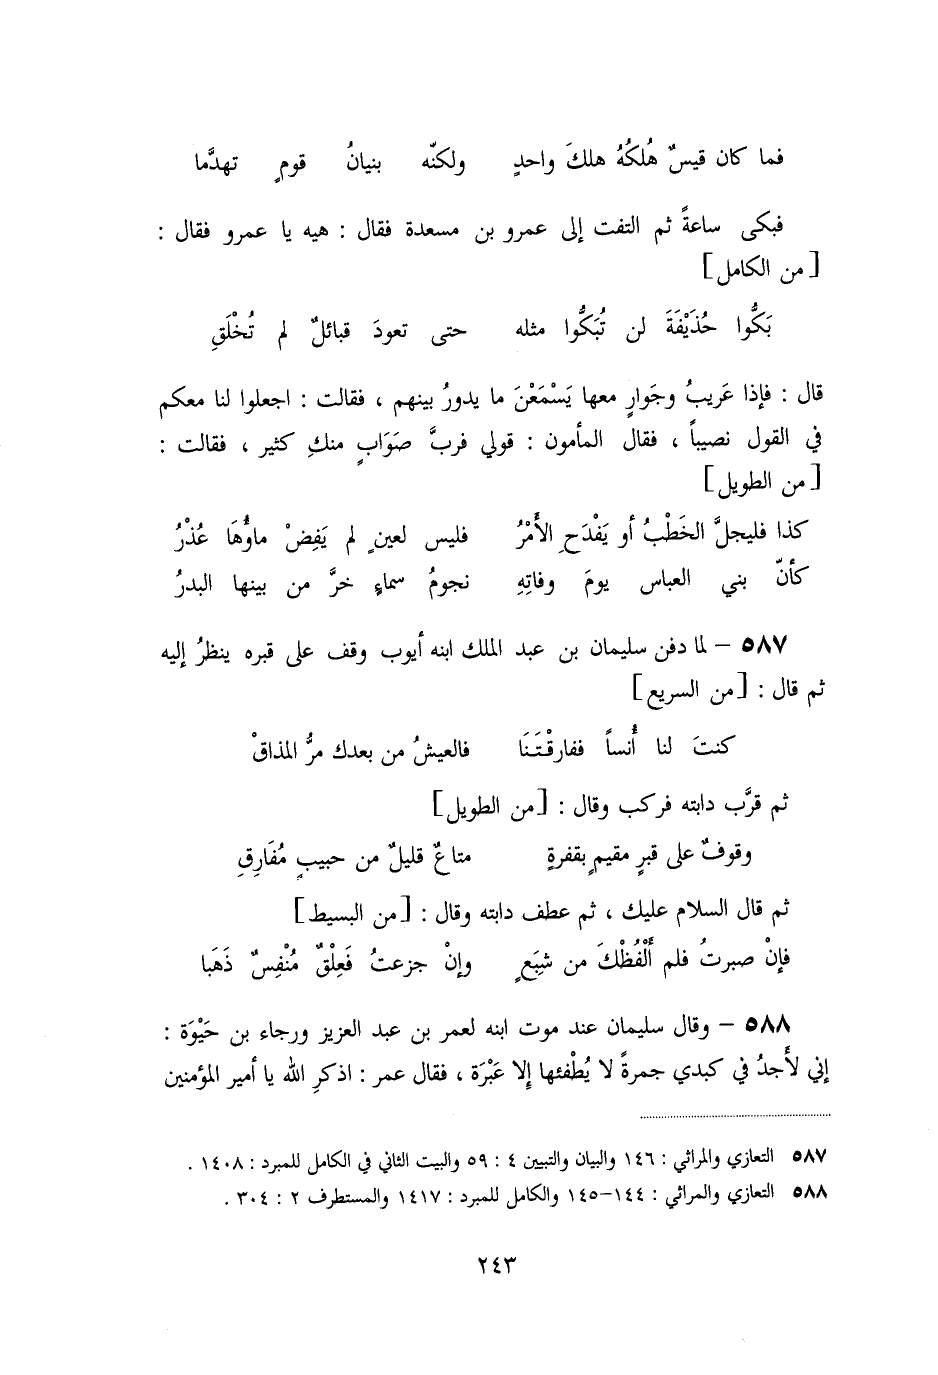 فما كان قيسٌ هُلكُهُ هلكَ واحدٍ ولكنّه بنيانُ قومٍ تهدَّما
فبكى ساعةً ثم التفت إلى عمرو بن مسعدة فقال : هيه يا عمرو فقال :
[من الكامل]
بَكُّوا حُذَيْفَةَ لن تُبَكُّوا مثله حتى تعودَ قبائلٌ لم تُخْلَقِ
قال : فإذا عَريبُ وجَوارٍ معها يَسْمَعْنَ ما يدورُ بينهم ، فقالت : اجعلوا لنا معكم
في القول نصيباً ، فقال المأمون : قولي فربَّ صَوَابٍ منكِ كثير ، فقالت :
[من الطويل]
كذا فليجلَّ الخَطْبُ أو يَفْدَحِ الأَمْرُ فليس لعينٍ لم يَفِضْ ماؤُهَا عُذْرُ
كأنّ بني العباس يومَ وفاتِهِ نجومُ سماءٍ خرَّ من بينها البدرُ
٥٨٧ – لما دفن سليمان بن عبد الملك ابنه أيوب وقف على قبره ينظرُ إليه
ثم قال : [من السريع]
كنتَ لنا أُنساً ففارقْتَنَا فالعيشُ من بعدك مرُّ المذاقْ
ثم قرَّب دابته فركب وقال : [من الطويل]
وقوفٌ على قبرٍ مقيمٍ بقفرةٍ متاعٌ قليلٌ من حبيبٍ مُفَارِقِ
ثم قال السلام عليك ، ثم عطف دابته وقال : [من البسيط]
فإنْ صبرتُ فلم أَلْفُظْكَ من شِبَعٍ وإنْ جزعتُ فَعِلْقٌ مُنْفِسٌ ذَهَبا
٥٨٨ – وقال سليمان عند موت ابنه لعمر بن عبد العزيز ورجاء بن حَيْوَة :
إني لأَجدُ في كبدي جمرةً لا يُطْفئها إلا عَبْرَة ، فقال عمر : اذكرِ الله يا أمير المؤمنين
٥٨٧ التعازي والمراثي : ١٤٦ والبيان والتبيين ٤ : ٥٩ والبيت الثاني في الكامل للمبرد : ١٤٠٨ .
٥٨٨ التعازي والمراثي : ١٤٤–١٤٥ والكامل للمبرد : ١٤١٧ والمستطرف ٢ : ٣٠٤ .
٢٤٣